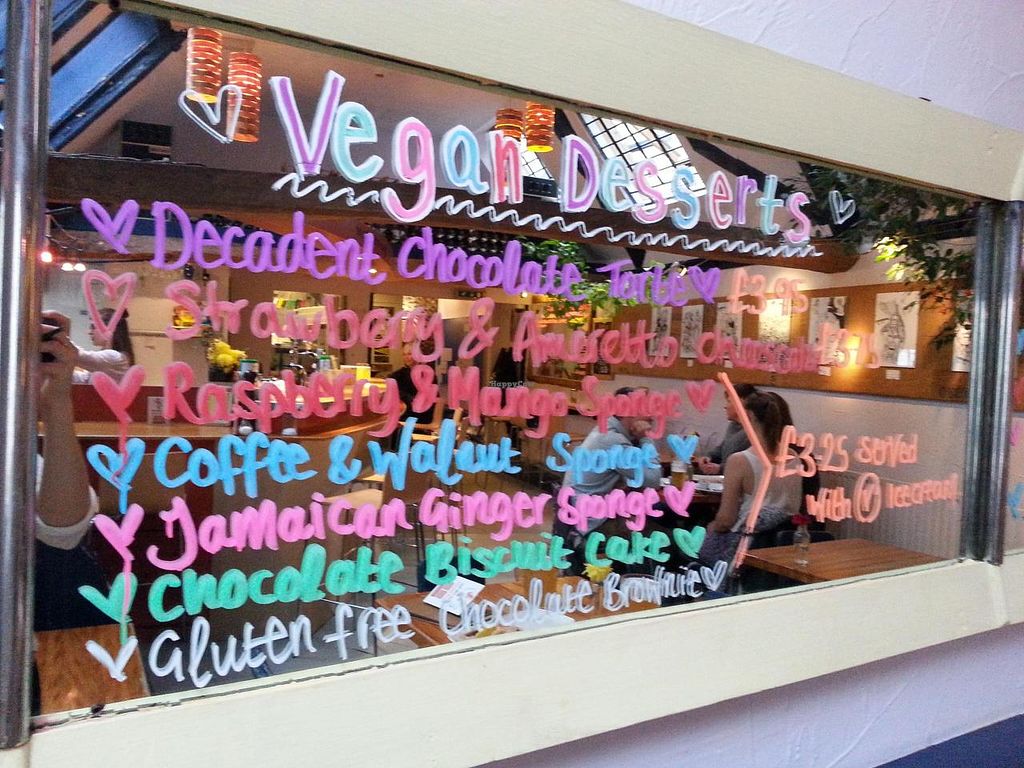 Vegan Desserts
Decadent Chocolate Torte £3.95
Strawberry & Amaretto
Raspberry & Mango Sponge
Coffee & Walnut Sponge
Jamaican Ginger Sponge
Chocolate Biscuit Cake
Gluten free Chocolate Brownie
£3.25 served
with V Icecream!
HappyCow